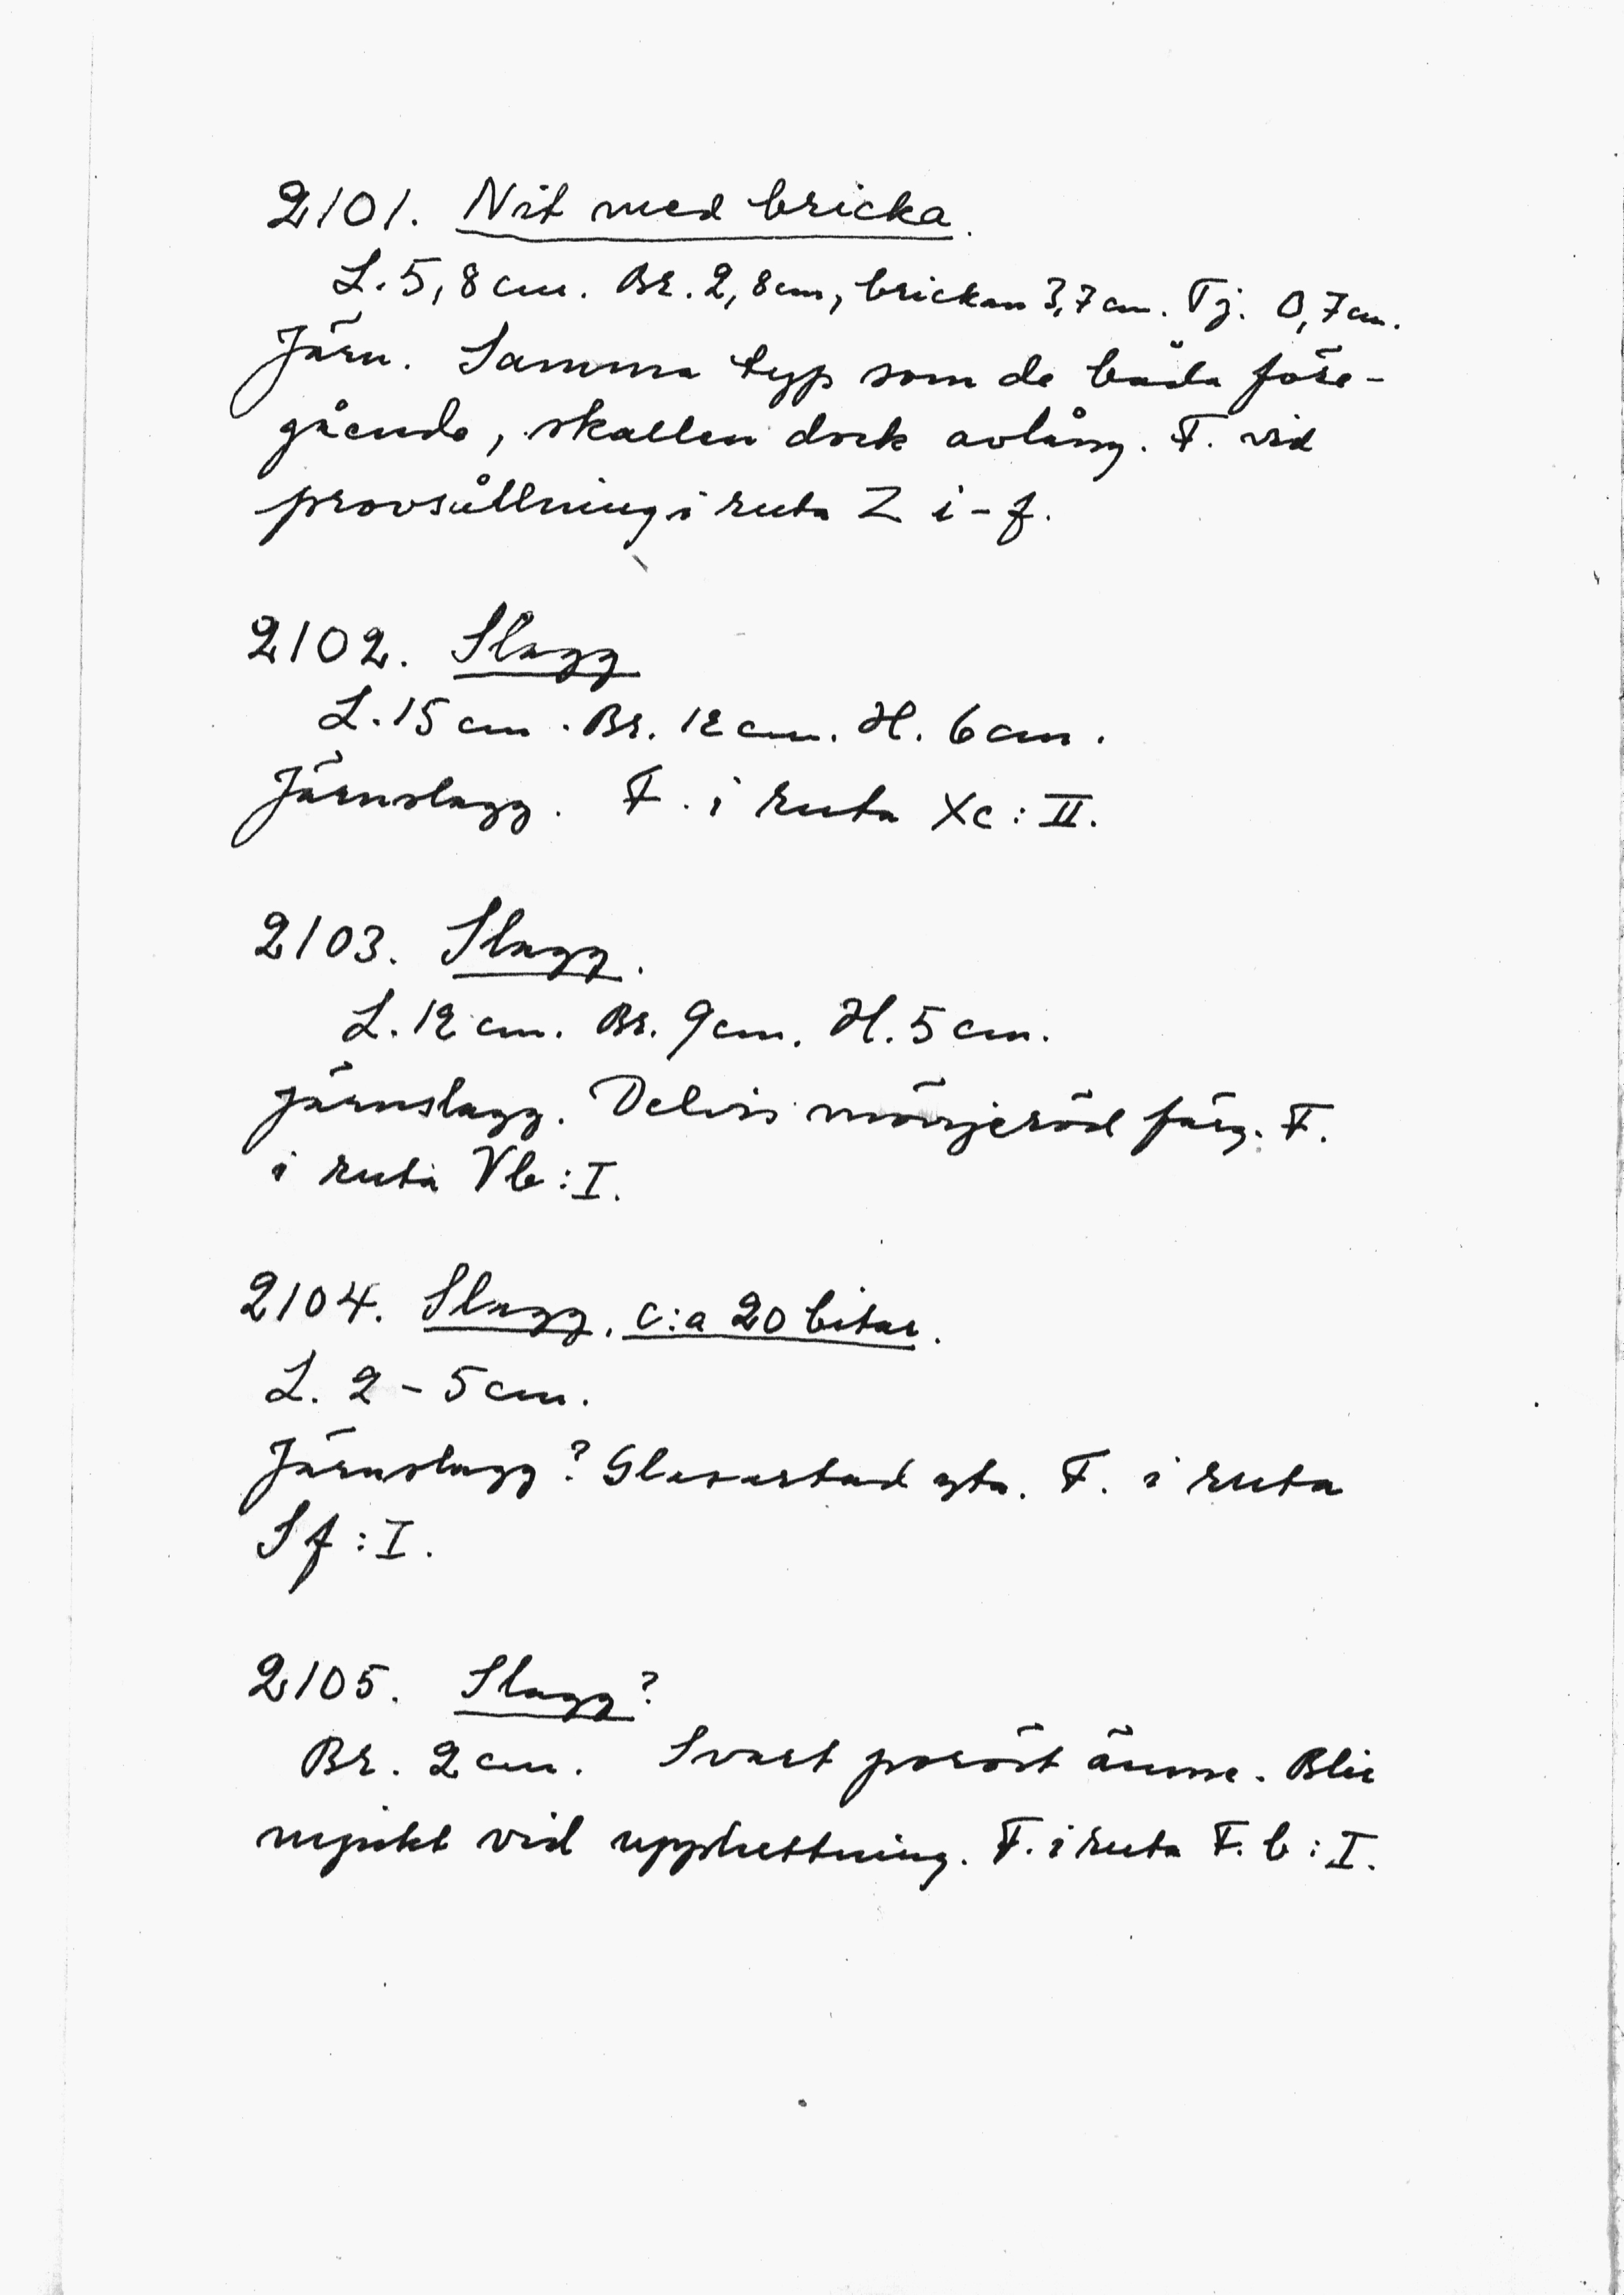 2101. Nit med bricka.
L. 5,8 cm. Br. 2,8 cm, brickan 3,7 cm. Tj. 0,7 cm.
Järn. Samma typ som de båda före-
gående, skallen dock avlång. F. vid
provsållning i ruta Z i-f.
2102. Slagg
L. 15 cm. Br. 12 cm. H. 6 cm.
Järnslagg. F. i ruta Xc: II.
2103. Slagg.
L. 12 cm. Br. 9 cm. H. 5 cm.
Järnslagg. Delvis mönjeröd färg. F.
i ruta Vb: I.
2104. Slagg, c:a 20 bitar.
L. 2 - 5 cm.
Järnslagg? Glasartad yta. F. i ruta
Sf: I.
2105. Slagg?
Br. 2 cm. Svart poröst ämne. Blir
mjukt vid upphettning. F. i ruta F. b: I.